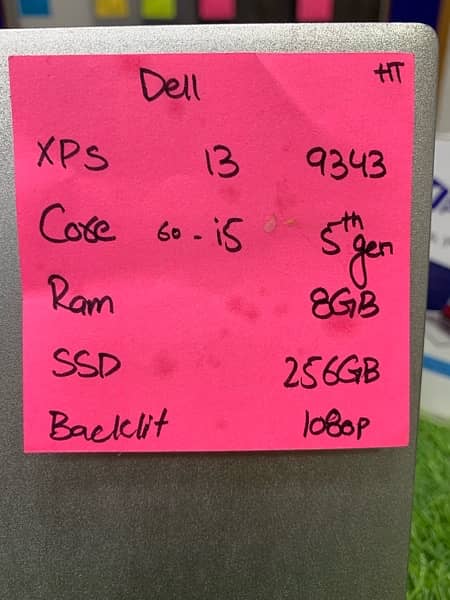 Dell HT
XPS 13 9343
Core 60 - i5 5th gen
Ram 8GB
SSD 256GB
Backlit 1080p